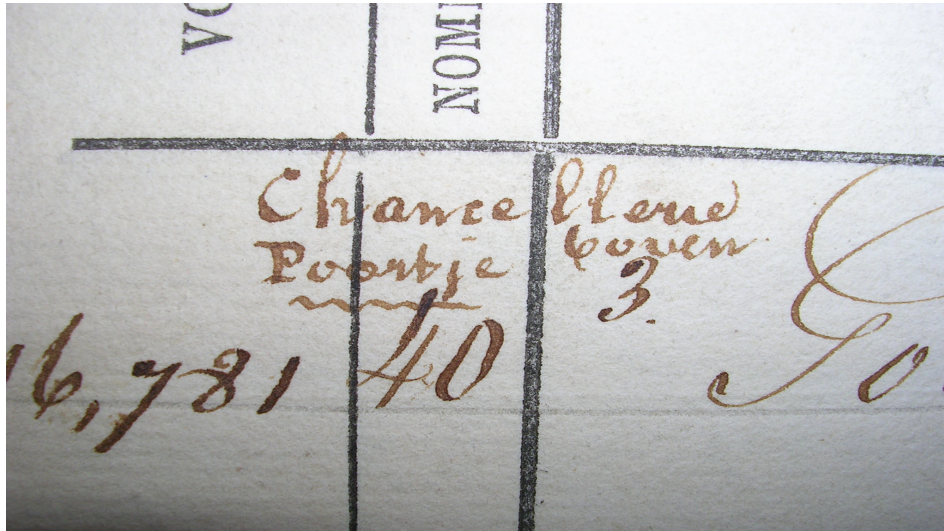 VO
NOMI
Chancellerie
Poortje boven
16,781 40 3.